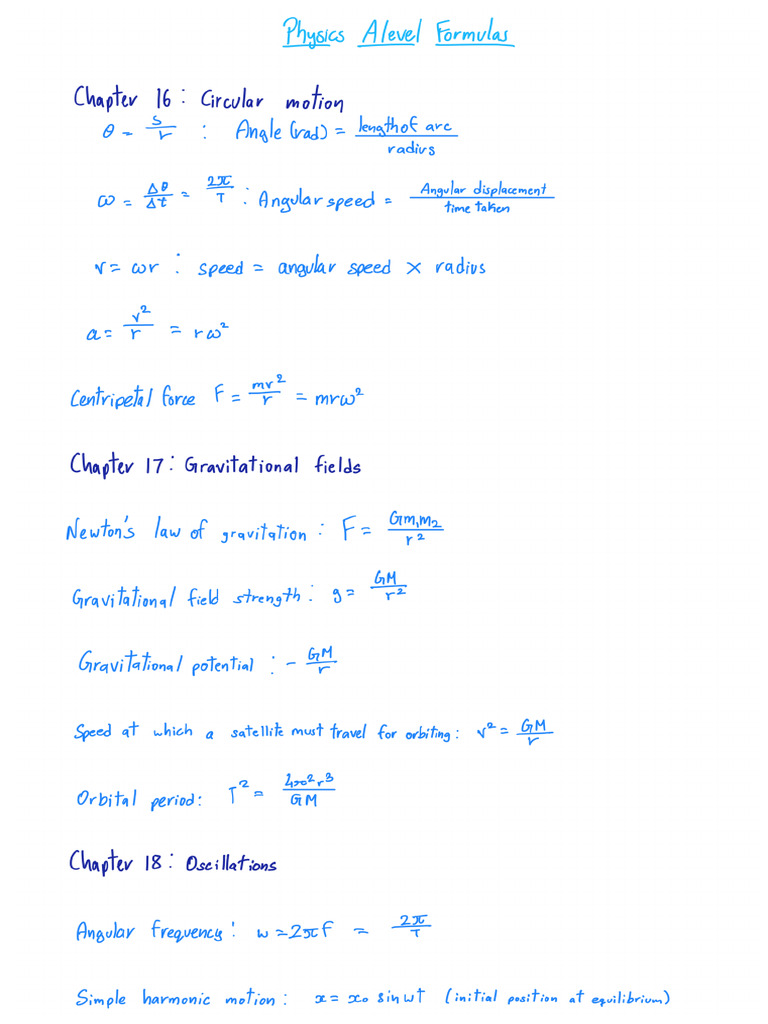 Physics Alevel Formulas
Chapter 16 : Circular motion
θ = s/r : Angle (rad) = length of arc / radius
ω = Δθ/Δt = 2π/T : Angular speed = Angular displacement / time taken
v = ωr : speed = angular speed × radius
a = v²/r = rω²
Centripetal force F = mv²/r = mrω²
Chapter 17 : Gravitational fields
Newton's law of gravitation : F = Gm₁m₂/r²
Gravitational field strength : g = GM/r²
Gravitational potential : - GM/r
Speed at which a satellite must travel for orbiting : v² = GM/r
Orbital period : T² = 4π²r³/GM
Chapter 18 : Oscillations
Angular frequency : ω = 2πf = 2π/T
Simple harmonic motion : x = x₀ sin ωt (initial position at equilibrium)